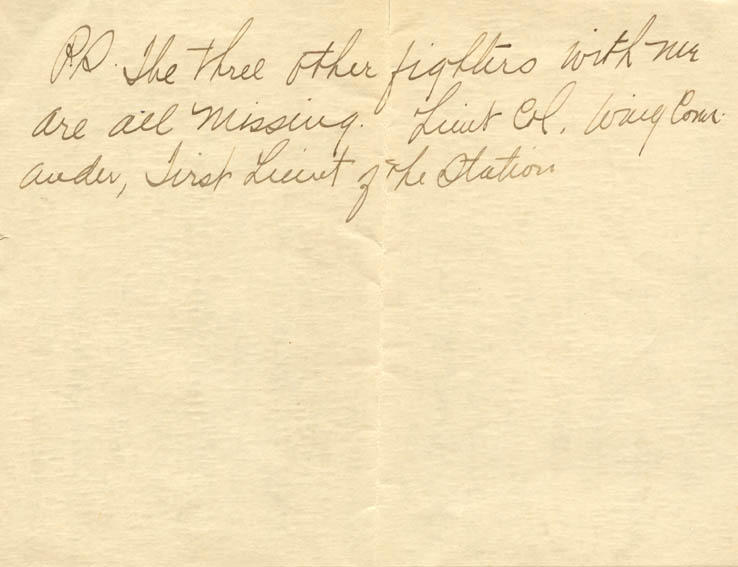 P.S. The three other fighters with me
are all missing. Lieut Col. Wing Comm-
ander, First Lieut of the Station